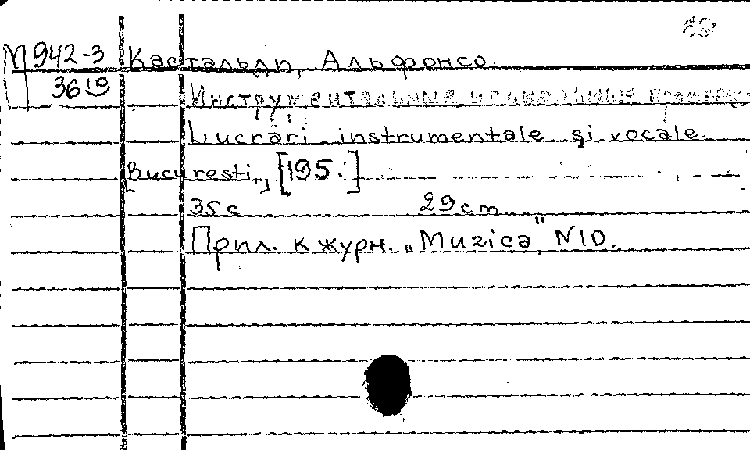 М942-3 Кастальди, Альфонсо.
3619
Инструментальные и вокальные
Lucrări instrumentale şi vocale.
[Bucureşti,] [195.]
35 с 29 cm
Прил. к журн. „Muzica", N10.